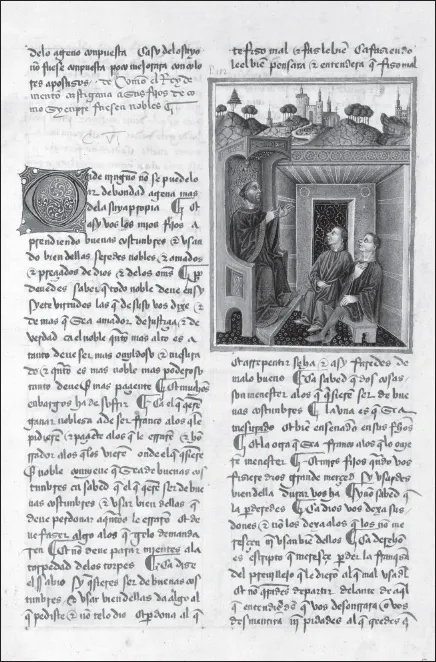 delo ageno conpuesta Ca sy delo suyo
no fuese conpuesta poco mejoraria con colo
res apostizos · De Como el Rey de
menton castigaua a sus fijos de co
mo syenpre fuesen nobles
VI
Onde ninguno no se puede lo
ar de bondad agena mas
dela suya propia Et
asy vos los mios fijos a
prendiendo buenas costunbres & vsan
do bien dellas seredes nobles & amados
& preçiados de dios & delos oms Et
deuedes saber q todo noble deue en sy
syete virtudes las q de suso vos dixe &
de mas q sea amador de justiçia & de
verdad ca el noble qnto mas alto es a
tanto deue ser mas omildoso & mesura
do & qnto es mas noble mas poderoso
tanto deue mas paçiente Et muchos
enbargos ha de sofrir Ca el q qere
ganar nobleza a de ser franco alos q le
pidiere & paçiente alos q le erraren & ho
rrador alos q los viere onde el q qisiere
ser noble conviene q sea de buenas cos
tunbres ca sabed q el q qere ser de bue
nas costunbres & vsar bien dellas q
deue perdonar aqntos le erraren et de
ue fazer algo alos q gelo demanda
ren Et no deue parar mientes ala
torpedad delos torpes Ca dize
el sabio sy qsieres ser de buenas cos
tunbres & vsar bien dellas da algo al q
pediste & no telo dio & perdona al q
te fizo mal & faz le bien Ca faziendo
le el bien pensara & entendera q fizo mal
et arrepentir se ha & asy faredes de
malo bueno Ca sabed q dos cosas
son menester alos q qsiere ser de bue
nas costunbres La vna es q sea
mesurado et bie ensenado en sus fechos
Et la otra q sea franco alos q lo ouiere
menester Et mios fijos qndo vos
fiziere dios grande merced sy vsardes
bien della durar vos ha sy no sabed q
la perderedes Ca dios no dexa sus
dones & no los dexa alos q los no me
resçen q no vsan bie dellos Ca derecho
es escripto q meresçe perder la franqza
del preuillejo q le diero al q mal vsa del
Et no qrades departir delante de aql
q entendiedes q vos desonrrara o vos
desmentira ni pidades al q creedes q